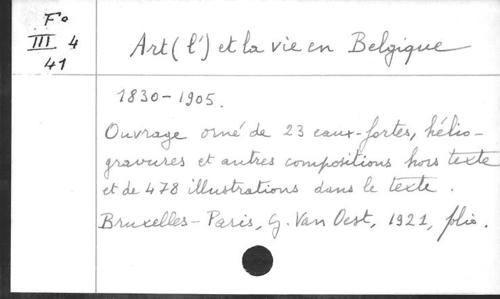 Fº
III 4
41
Art (l') et la vie en Belgique
1830-1905.
Ouvrage orné de 23 eaux-fortes, hélio-
gravures et autres compositions hors texte
et de 478 illustrations dans le texte.
Bruxelles-Paris, G. Van Oest, 1921, folio.